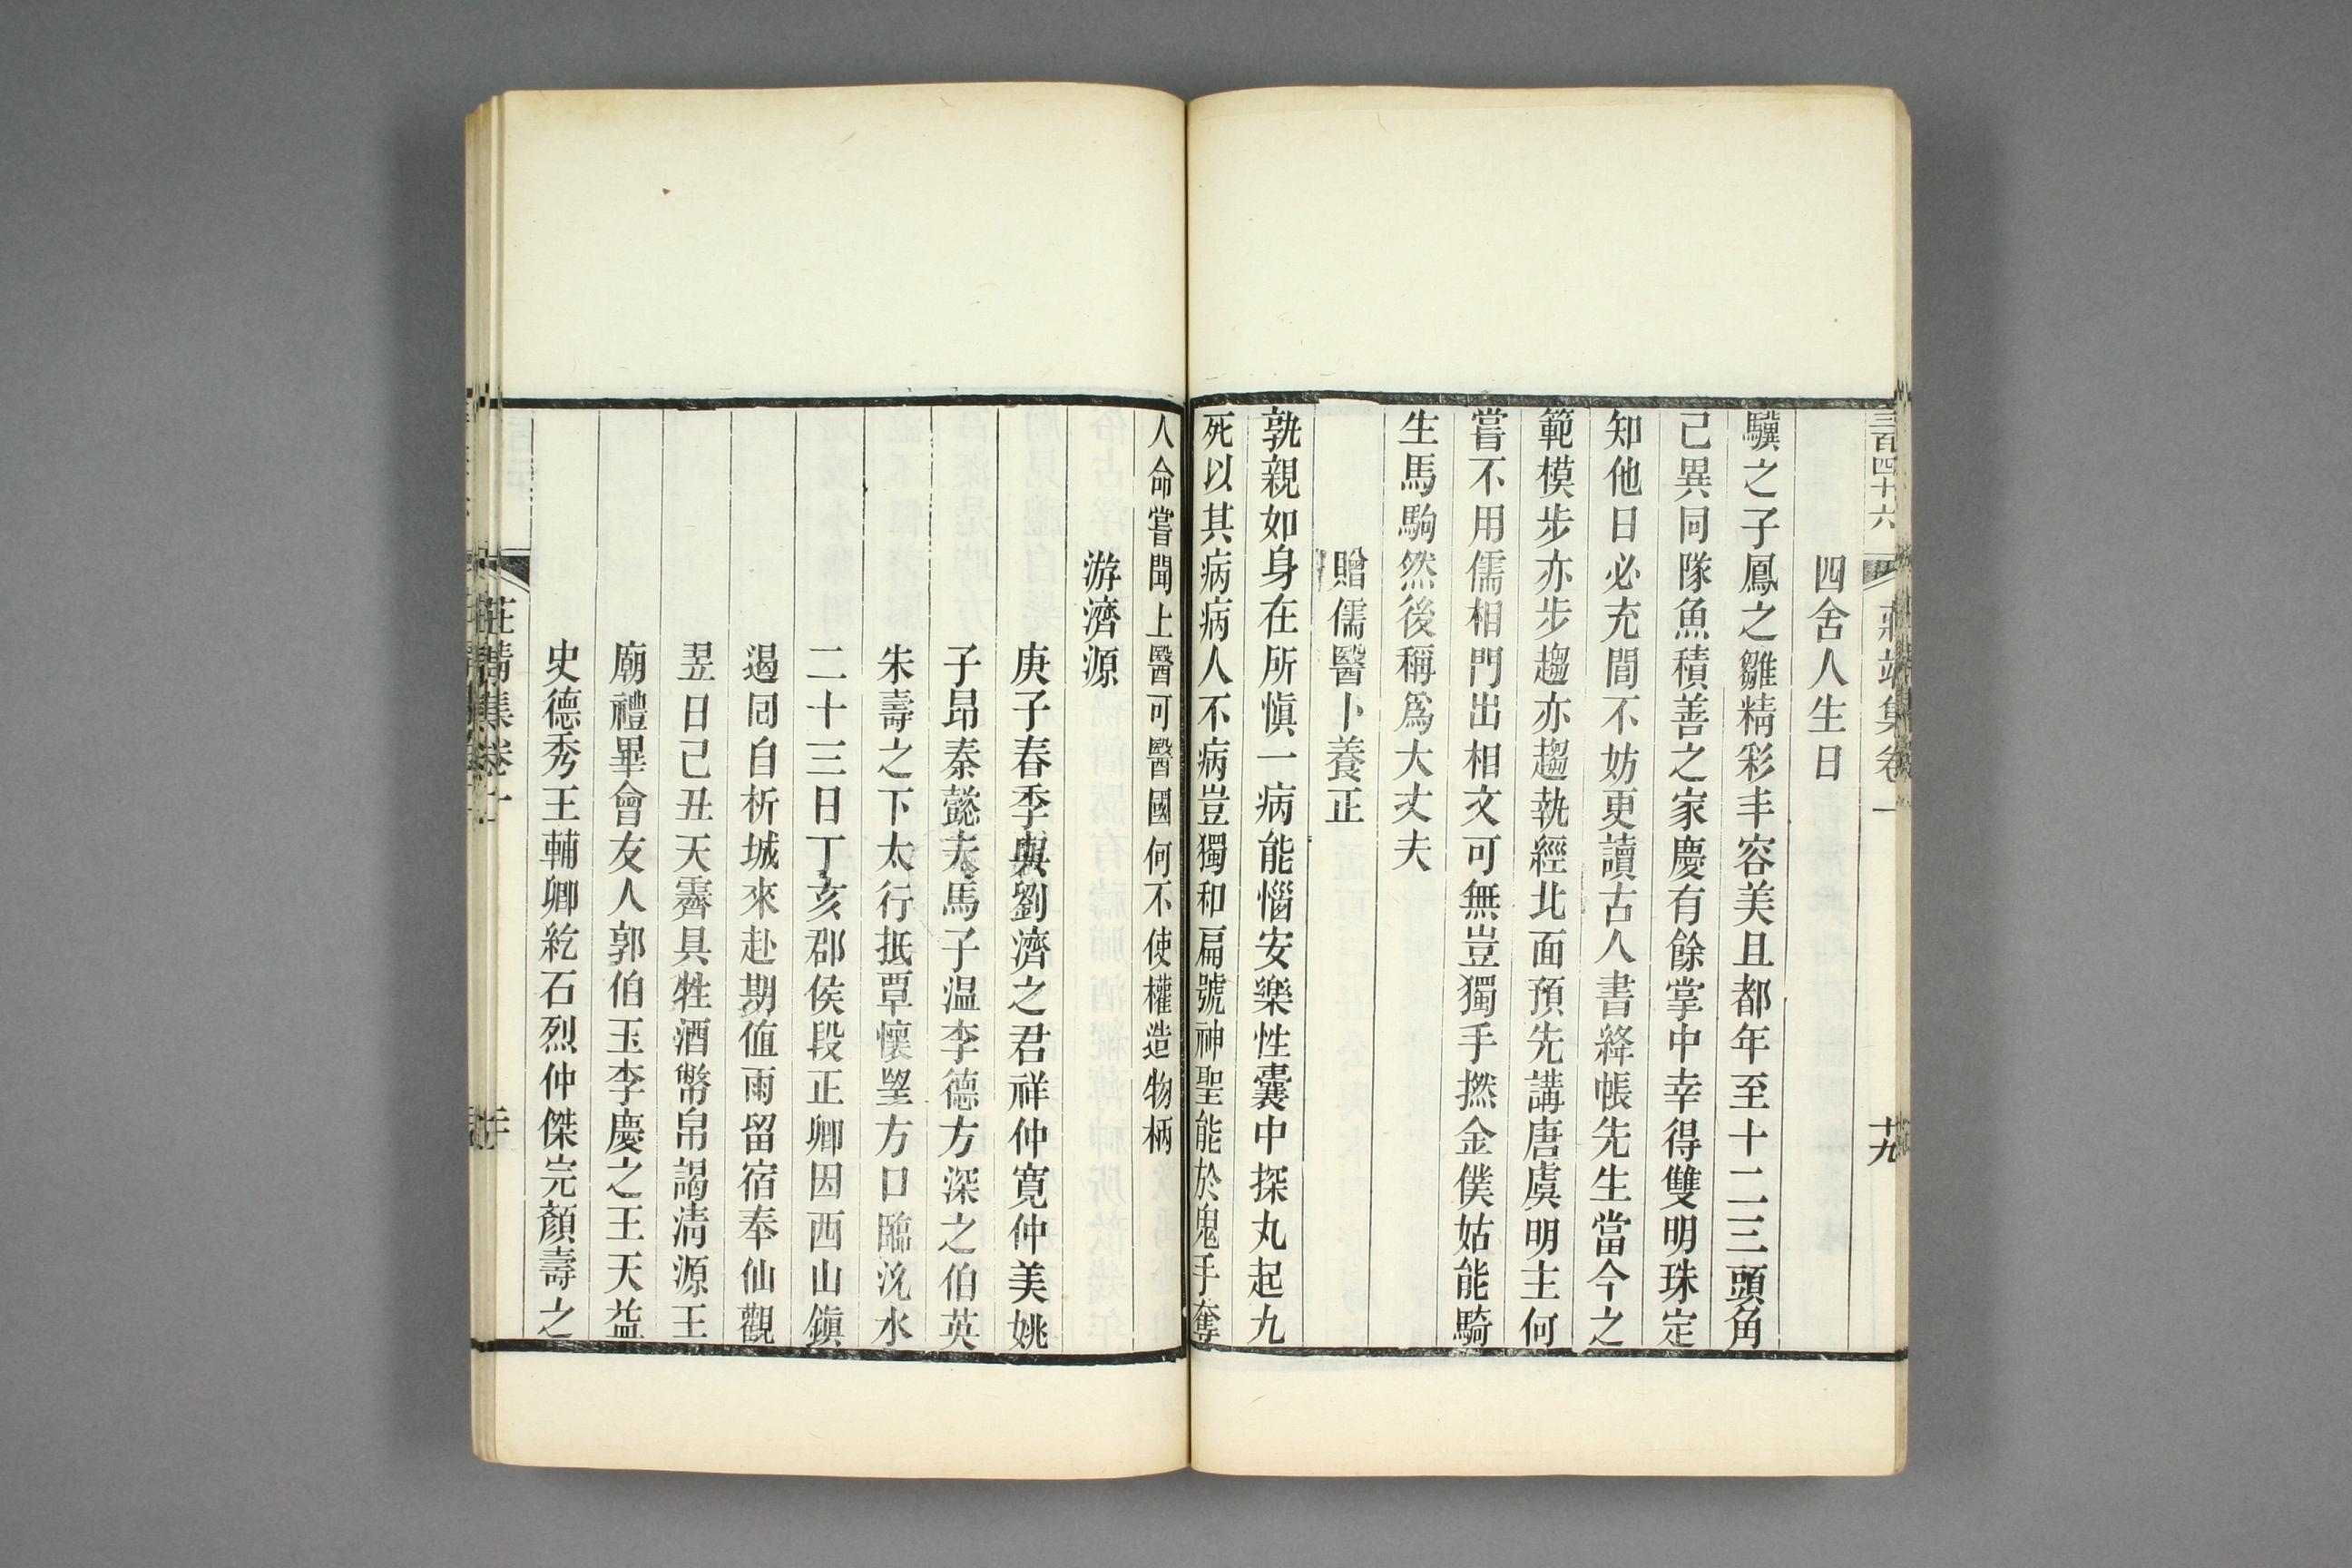 三百四十六 莊靖集卷一 十九
四舍人生日
驥之子鳳之雛精彩丰容美且都年至十二三頭角
己異同隊魚積善之家慶有餘掌中幸得雙明珠定
知他日必充閭不妨更讀古人書絳帳先生當今之
範模步亦步趨亦趨執經北面預先講唐虞明主何
嘗不用儒相門出相文可無豈獨手撚金僕姑能騎
生馬駒然後稱爲大丈夫
贈儒醫卜養正
孰親如身在所慎一病能惱安樂性囊中探丸起九
死以其病病人不病豈獨和扁號神聖能於鬼手奪
人命嘗聞上醫可醫國何不使權造物柄
游濟源
庚子春季與劉濟之君祥仲寬仲美姚
子昂秦懿夫馬子温李德方深之伯英
朱壽之下太行抵覃懷望方口臨沇水
二十三日丁亥郡侯段正卿因西山鎮
遏回自析城來赴期值雨留宿奉仙觀
翌日己丑天霽具牲酒幣帛謁清源王
廟禮畢會友人郭伯玉李慶之王天益
史德秀王輔卿紇石烈仲傑完顏壽之
莊靖集卷十